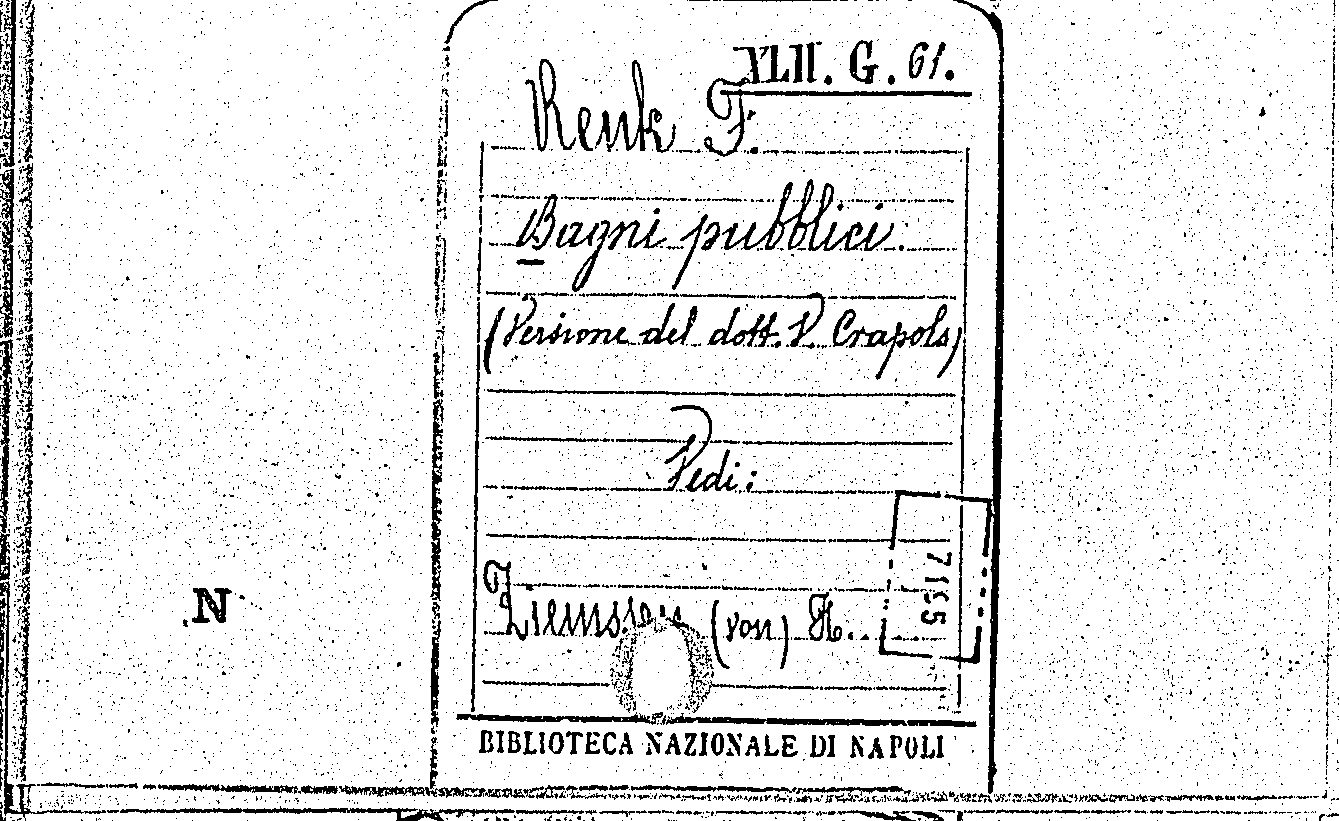 XLII. G. 61.
Renk F.
Bagni pubblici.
(Versione del dott. V. Crapols)
Vedi:
Ziemssen (von) H..
7195
N
BIBLIOTECA NAZIONALE DI NAPOLI